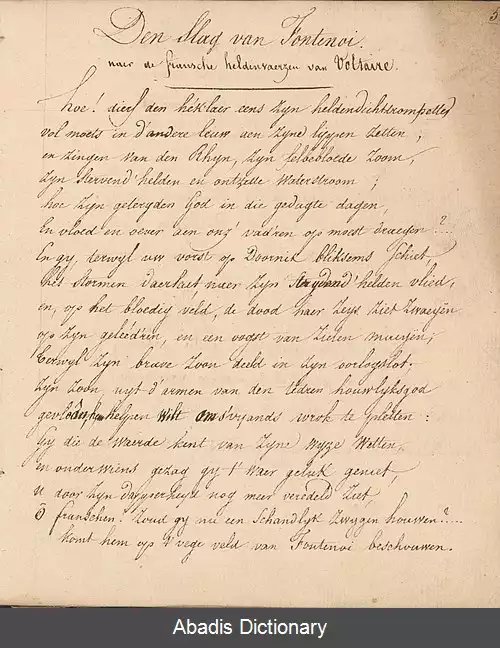 Den Slag van Fontenoi.
naer de fransche heldenvaerzen van Voltaire.
hoe! dierf den héklaer eens zyn heldendichtstrompette
vol moets in d'andere eeuw aen zyne lippen zetten;
en zingen van den Rhyn, zyn bebloede zoom,
zyn stervend' helden en ontzette Waterstroom;
hoe zyn getergden God in die gedugte dagen,
En vloed en oever aen onz' vad'ren op moest draegen?...
En gy, terwyl uw vorst op Doornik bliksems schiet,
het stormen daerlaet, naer zyn strydend' helden vlied;
en, op het bloedig veld, de dood haer Zeys ziet Zwaeyën
op zyn geleed'ren, en een oogst van Zielen maeyën;
terwyl Zyn brave Zoon deeld in zyn oorlogslot;
Zyn Zoon, uyt d'armen van den Ted'ren houwlyksgod
helpen wilt om s'vyands wrok te pletten:
Gy die de Waerde kent van Zyne Wyze Wetten,
en onder wiens gezag gy 't Waer geluk geniet,
U door Zyn dapperheyd nog meer veredeld Ziet,
O franschen! Zoud gy nu een Schandlyk Zwygen houwen?...
komt hem op 't vege veld van Fontenoi beschouwen.
Abadis Dictionary